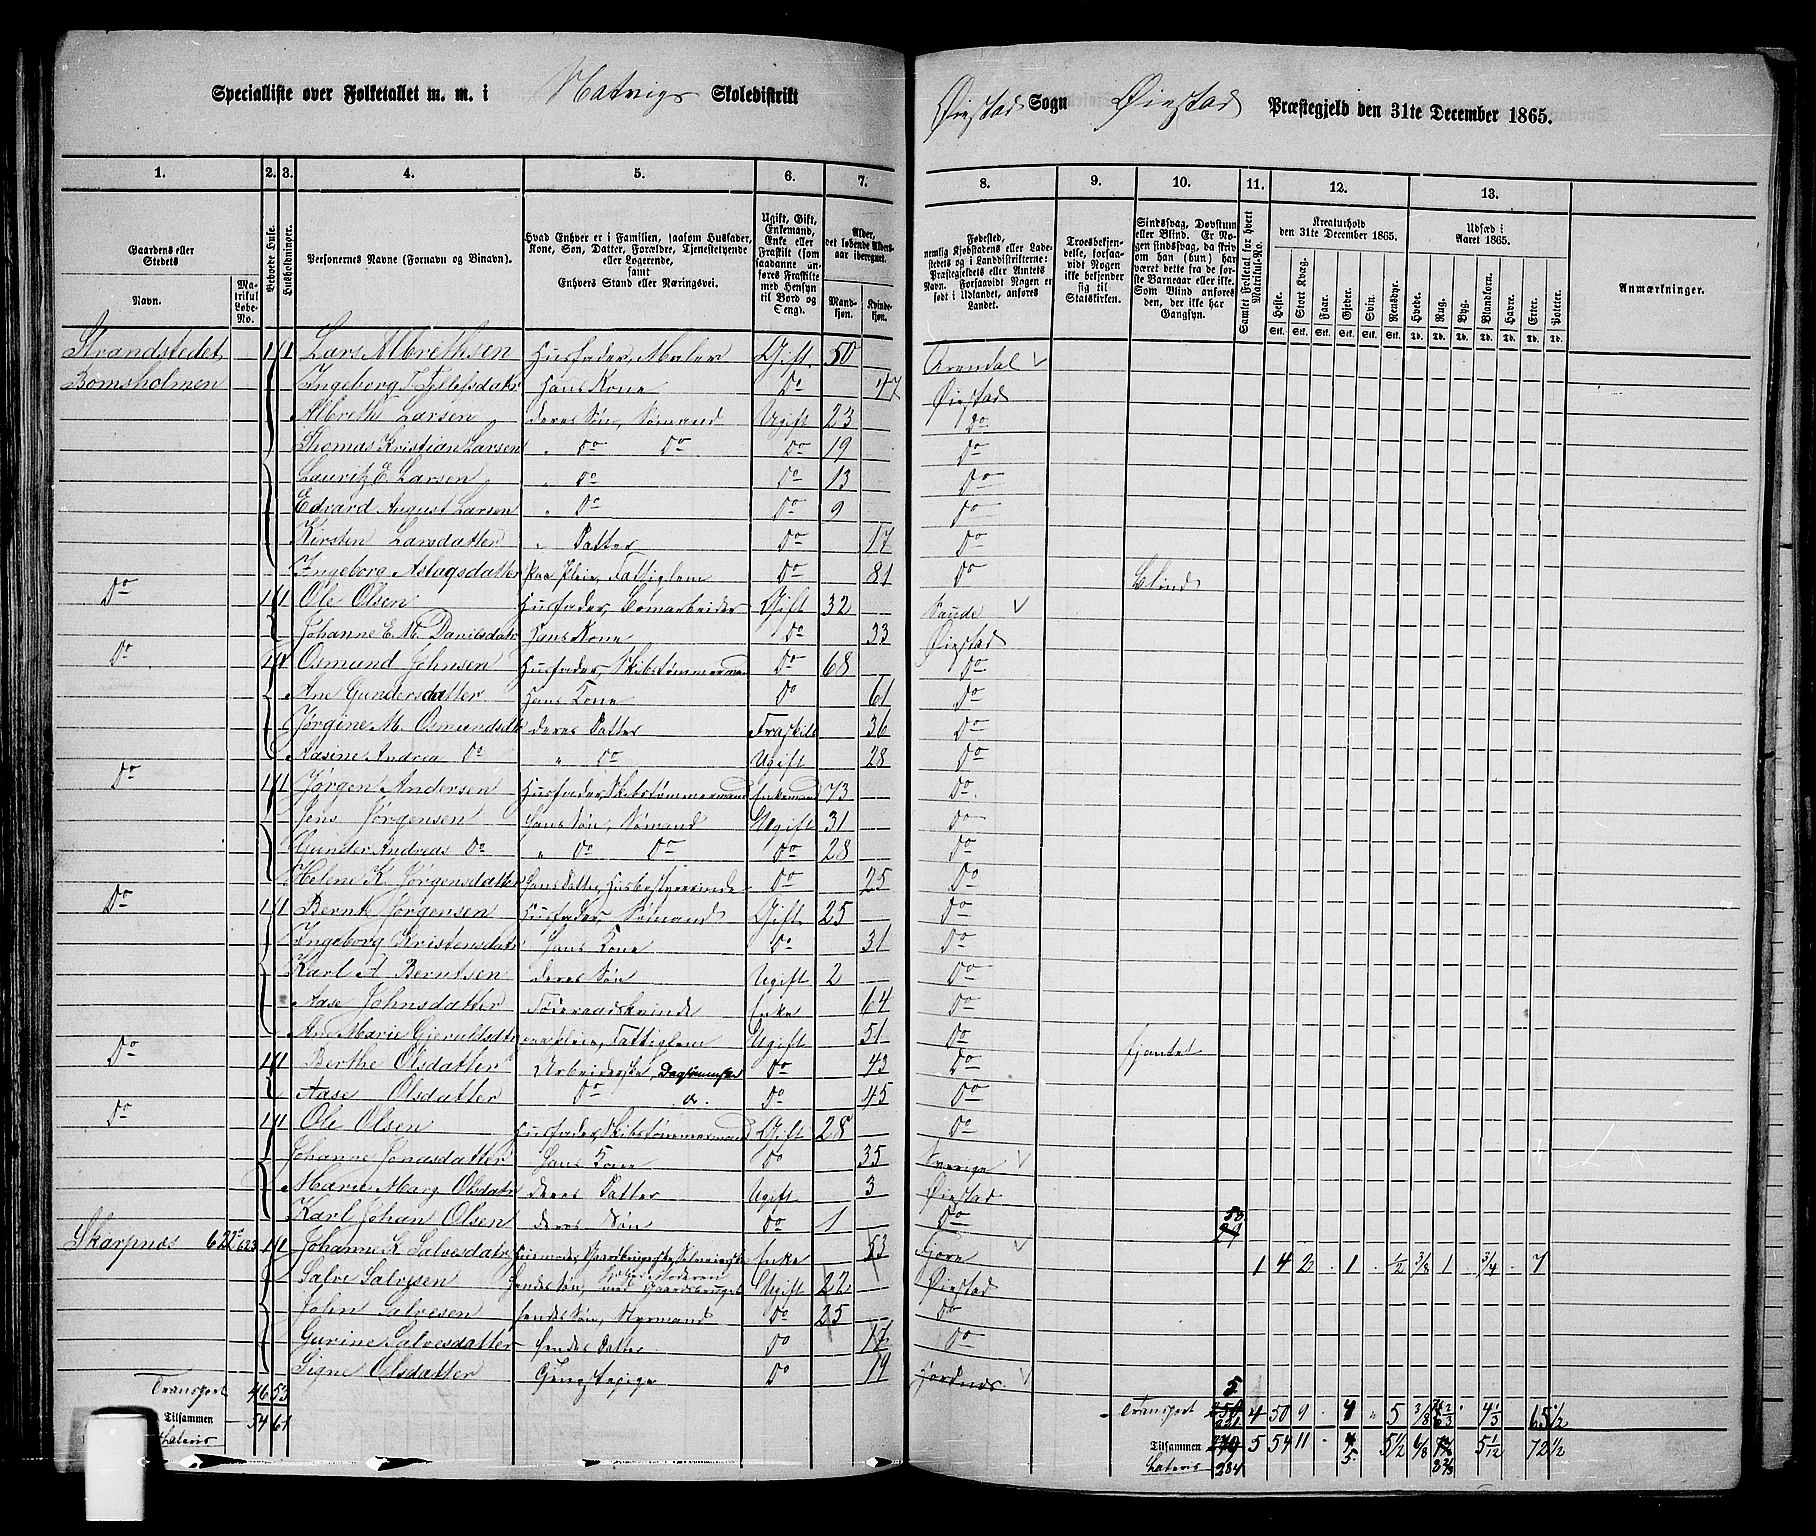 Specialliste over Folketallet m. m. i Natvigs Skoledistrikt
Øiestad Sogn Øiestad Præstegjeld den 31te December 1865.
1. 2. 3. 4. 5. 6. 7. 8. 9. 10. 11. 12. 13.
Gaardens eller Stedets Navn. Matrikul Løbe-No. Beboede Huse. Husholdninger. Personernes Navne (Fornavn og Binavn).
Hvad Enhver er i Familien, saasom Husfader, Kone, Søn, Datter, Forældre, Tjenestetyende eller Logerende, samt Enhvers Stand eller Næringsvei.
Ugift, Gift, Enkemand, Enke eller Fraskilt (som saadanne anføres Fraskilte med Hensyn til Bord og Seng).
Alder, det løbende Alders-aar iberegnet. Mandkjøn. Kvindekjøn.
Fødested, nemlig Kjøbstadens eller Ladestedets og i Landdistrikterne: Præstegjeldets eller Amtets Navn. Forsaavidt Nogen er født i Udlandet, anføres Landet.
Troesbekjendelse, forsaavidt Nogen ikke bekjender sig til Statskirken.
Sindssvag, Døvstum eller Blind. Er Nogen sindssvag, da skriv om han (hun) har været dette fra de første Barneaar eller ikke. Som Blind anføres den, der ikke har Gangsyn.
Samlet Folketal for hvert Matrikul-No.
Kreaturhold den 31te December 1865. Heste. Stort Kvæg. Faar. Gjeder. Svin. Rensdyr.
Udsæd i Aaret 1865. Hvede. Rug. Byg. Blandkorn. Havre. Erter. Poteter.
Anmærkninger.
Strandstedet 1 1 Lars Albrethsen Husfader, Maler Gift 50 Arendal
Bomsholmen Ingeborg T. Tjllefsdatr Hans Kone Do 47 Øiestad
Albreth Larsen deres Søn, Sømand Ugift 23 Do
Thomas Kristian Larsen " Do Do Do 19 Do
Lauritz E. Larsen " Do Do 13 Do
Edvard August Larsen " Do Do 9 Do
Kirsten Larsdatter " Datter Do 17 Do
Ingeborg Aslagsdatter paa Pleie, Fattiglem Do 81 Do Blind
Do 1 1 Ole Olsen Husfader, Tømarbeider Gift 32 Saude
Johanne E. M. Danielsdatr Hans Kone Do 33 Øiestad
Do 1 1 Osmund Johnsen Husfader, Skibstømmermand Do 68 Do
Ane Gundersdatter Hans Kone Do 61 Do
Jørgine M. Osmundsdtr deres Datter Fraskilt 36 Do
Aasine Andrea Do " Do Ugift 28 Do
Do 1 1 Jørgen Andersen Husfader, Skibstømmermand Enkemand 73 Do
Jens Jørgensen Hans Søn, Sømand Ugift 31 Do
Gunder Andreas Do " Do Do Do 28 Do
Helene K. Jørgensdatter Hans Datter, Husbestyrerinde Do 25 Do
Do 1 1 Bernt Jørgensen Husfader, Sømand Gift 25 Do
Ingeborg Kristensdatr Hans Kone Do 31 Do
Karl A Berntsen deres Søn Ugift 2 Do
Aase Johnsdatter Føderaadskvinde Enke 64 Do
Ane Marie Gjeruldsdtr paa Pleie, Fattiglem Ugift 51 Do
Do 1 1 Berthe Olsdatter Arbeiderske, Do 43 Do
Aase Olsdatter Do Do 45 Do
Do 1 1 Ole Olsen Husfader, Skibstømmermand Gift 28 Do
Johanne Jonasdatter Hans Kone Do 35 Sverige
Maria Marg. Olsdatr deres Datter Ugift 3 Øiestad
Karl Johan Olsen deres Søn Do 1 Do
Skarpnæs 622 623 1 1 Johanne K. Salvesdatr Enke 53 Fjære 1 4 2 . 1 . ½ 3/8 1 . 3/4 . 7
Salve Salvesen Hendes Søn, Ugift 22 Øiestad
John Salvesen Hendes Søn, Styrmand Do 25 Do
Gurine Salvesdatter Hendes Datter Do 17 Do
Signe Olsdatter Do 19
Transport 46 53 Transport 4 50 9
Tilsammen 54 61 Tilsammen 5 54 11 5½ 6/8 5 1/12 72½
Lateris Lateris 284